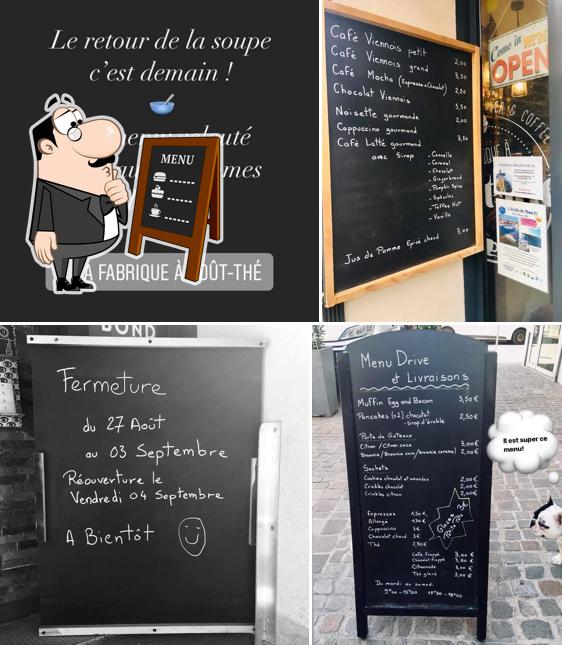 Le retour de la soupe
c'est demain !
MENU
A FABRIQUE À
OÛT-THÉ
Café Viennois petit
Café Viennois grand 2,00
Café Mocha (Expresso+Chocolat) 3,50
Chocolat Viennois
Noisette gourmande 3,50
Cappuccino gourmand 2,00
Café Latté gourmand 3,50
avec Sirop - Cannelle
- Caramel
- Chocolat
- Gingerbread
- Pumpkin Spice
- Spéculos
- Toffee Nut
- Vanille
Jus de Pomme Epicé chaud 3,00
Come in
WE'RE
OPEN
BOND
Fermeture
du 27 Août
au 03 Septembre
Réouverture le
Vendredi 04 Septembre
A Bientôt
Menu Drive
et Livraisons
Muffin Egg and Bacon 3,50€
Pancakes (x2) chocolat 2,50€
- sirop d'érable
Parts de Gateaux
Citron / Citron coco 3,00€
Brownie / Brownie coco / Brownie caramel 2,00€
Sachets
Cookies chocolat et amandes 2,00€
Crinkles chocolat 2,00€
Crinkles citron 2,00€
Expresso 1,50€
Allongé
Cappuccino
Chocolat chaud
Thé
3€
Café frappé 3,00€
Chocolat frappé
Citronnade
Thé glacé 3,00€
Du mardi au samedi
9h00 - 13h00
Il est super ce
menu!